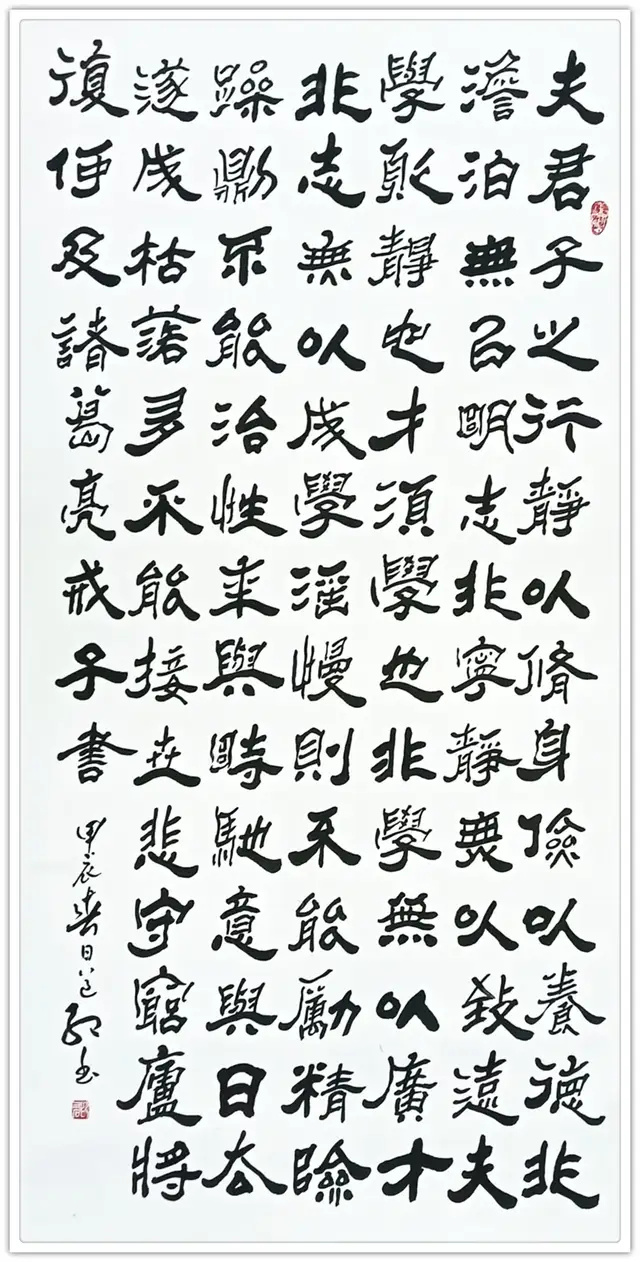 夫君子之行靜以脩身儉以養德非
澹泊無以明志非寧靜無以致遠夫
學須靜也才須學也非學無以廣才
非志無以成學滛慢則不能勵精險
躁則不能治性年與時馳意與日去
遂成枯落多不能接世悲守窮廬將
復何及諸葛亮戒子書
甲辰春日